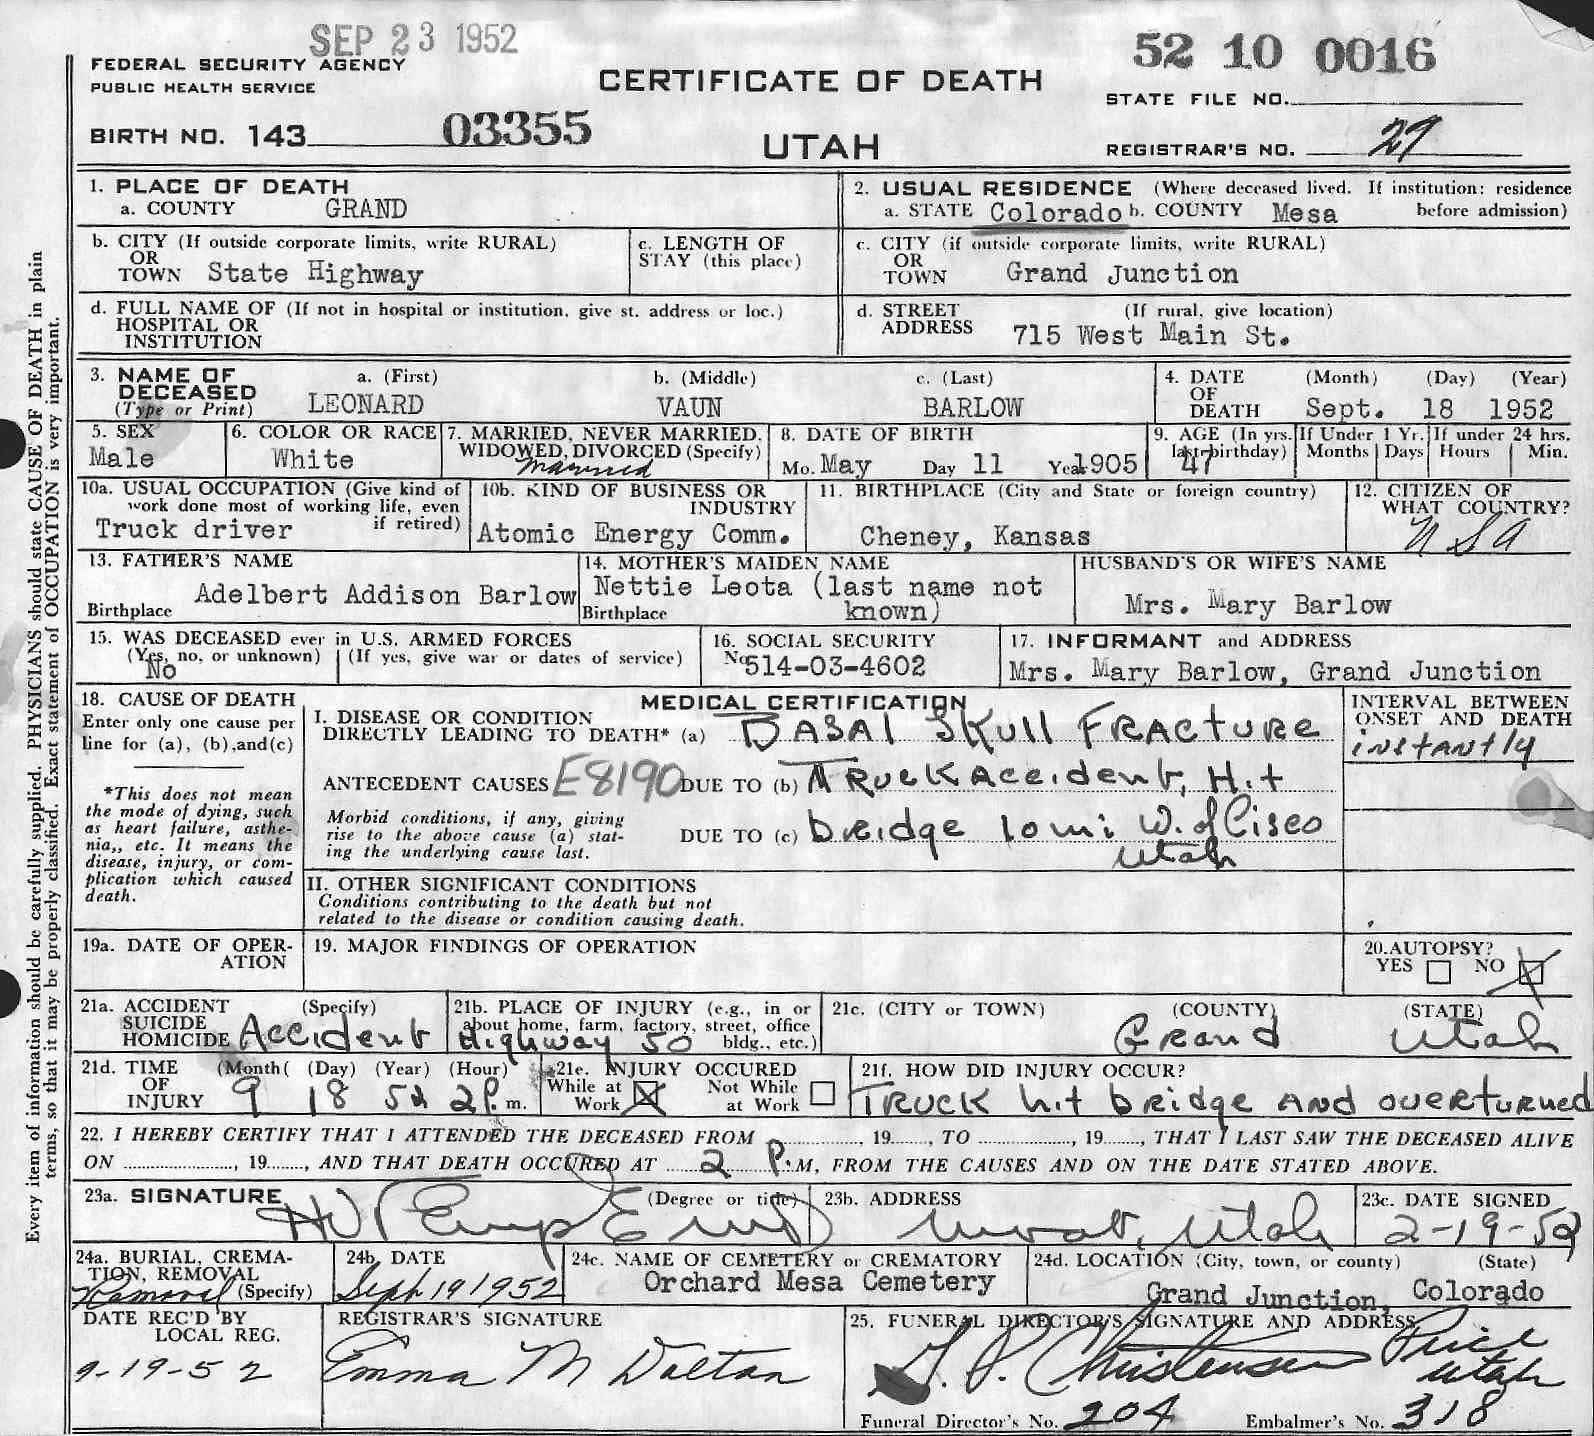 SEP 23 1952
52 10 0016
FEDERAL SECURITY AGENCY
PUBLIC HEALTH SERVICE
CERTIFICATE OF DEATH
STATE FILE NO.
BIRTH NO. 143 03355
UTAH
REGISTRAR'S NO. 29
Every item of information should be carefully supplied. PHYSICIANS should state CAUSE OF DEATH in plain
terms, so that it may be properly classified. Exact statement of OCCUPATION is very important.
1. PLACE OF DEATH
a. COUNTY GRAND
2. USUAL RESIDENCE (Where deceased lived. If institution: residence
a. STATE Colorado b. COUNTY Mesa before admission)
b. CITY (If outside corporate limits, write RURAL)
OR
TOWN State Highway
c. LENGTH OF
STAY (this place)
c. CITY (if outside corporate limits, write RURAL)
OR
TOWN Grand Junction
d. FULL NAME OF (If not in hospital or institution, give st. address or loc.)
HOSPITAL OR
INSTITUTION
d. STREET (If rural, give location)
ADDRESS 715 West Main St.
3. NAME OF a. (First) b. (Middle) c. (Last)
DECEASED
(Type or Print) LEONARD VAUN BARLOW
4. DATE (Month) (Day) (Year)
OF
DEATH Sept. 18 1952
5. SEX
Male
6. COLOR OR RACE
White
7. MARRIED, NEVER MARRIED,
WIDOWED, DIVORCED (Specify)
Married
8. DATE OF BIRTH
Mo. May Day 11 Year 1905
9. AGE (In yrs.
last birthday)
47
If Under 1 Yr.
Months Days
If under 24 hrs.
Hours Min.
10a. USUAL OCCUPATION (Give kind of
work done most of working life, even
if retired)
Truck driver
10b. KIND OF BUSINESS OR
INDUSTRY
Atomic Energy Comm.
11. BIRTHPLACE (City and State or foreign country)
Cheney, Kansas
12. CITIZEN OF
WHAT COUNTRY?
USA
13. FATHER'S NAME
Adelbert Addison Barlow
Birthplace
14. MOTHER'S MAIDEN NAME
Nettie Leota (last name not
Birthplace known)
HUSBAND'S OR WIFE'S NAME
Mrs. Mary Barlow
15. WAS DECEASED ever in U.S. ARMED FORCES
(Yes, no, or unknown) (If yes, give war or dates of service)
No
16. SOCIAL SECURITY
No 514-03-4602
17. INFORMANT and ADDRESS
Mrs. Mary Barlow, Grand Junction
18. CAUSE OF DEATH
Enter only one cause per
line for (a), (b), and (c)
*This does not mean
the mode of dying, such
as heart failure, asthe-
nia,, etc. It means the
disease, injury, or com-
plication which caused
death.
MEDICAL CERTIFICATION
I. DISEASE OR CONDITION
DIRECTLY LEADING TO DEATH* (a) BASAL SKULL FRACTURE
ANTECEDENT CAUSES E8190 DUE TO (b) TRUCK ACCIDENT, Hit
Morbid conditions, if any, giving
rise to the above cause (a) stat-
ing the underlying cause last.
DUE TO (c) bridge 10 mi W. of Cisco
Utah
INTERVAL BETWEEN
ONSET AND DEATH
instantly
II. OTHER SIGNIFICANT CONDITIONS
Conditions contributing to the death but not
related to the disease or condition causing death.
19a. DATE OF OPER-
ATION
19. MAJOR FINDINGS OF OPERATION
20. AUTOPSY?
YES NO X
21a. ACCIDENT (Specify)
SUICIDE
HOMICIDE Accident
21b. PLACE OF INJURY (e.g., in or
about home, farm, factory, street, office
bldg., etc.)
Highway 50
21c. (CITY or TOWN) (COUNTY) (STATE)
Grand Utah
21d. TIME (Month( (Day) (Year) (Hour)
OF
INJURY 9 18 52 2 P. m.
21e. INJURY OCCURED
While at
Work X
Not While
at Work
21f. HOW DID INJURY OCCUR?
TRUCK hit bridge AND overturned
22. I HEREBY CERTIFY THAT I ATTENDED THE DECEASED FROM ..., 19..., TO ..., 19..., THAT I LAST SAW THE DECEASED ALIVE
ON ..., 19..., AND THAT DEATH OCCURED AT 2 P.M, FROM THE CAUSES AND ON THE DATE STATED ABOVE.
23a. SIGNATURE (Degree or title)
23b. ADDRESS
Moab, Utah
23c. DATE SIGNED
2-19-52
24a. BURIAL, CREMA-
TION, REMOVAL
(Specify)
Removal
24b. DATE
Sept 19 1952
24c. NAME OF CEMETERY or CREMATORY
Orchard Mesa Cemetery
24d. LOCATION (City, town, or county) (State)
Grand Junction, Colorado
DATE REC'D BY
LOCAL REG.
9-19-52
REGISTRAR'S SIGNATURE
Emma M Dalton
25. FUNERAL DIRECTOR'S SIGNATURE AND ADDRESS
Christensen Price
Utah
Funeral Director's No. 204 Embalmer's No. 318